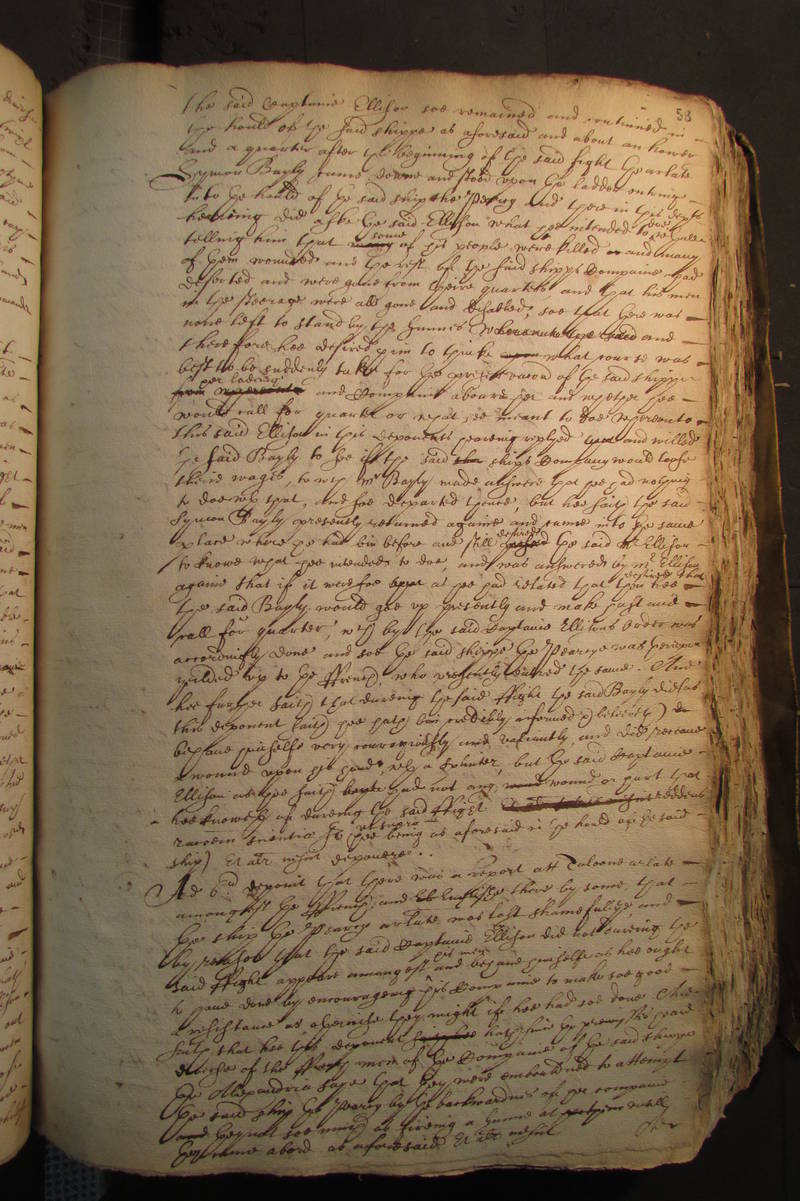 58
the said Captaine Ellison soe remained and continued in
the hould of the said shippe as aforesaid and about an hower
and a quarter after the beginning of the said fight the arlate
Symon Bayly came downe and stood upon the ladder entring
into the hould of the said ship the Pearg and there in this deponts
heareing did aske the said Ellison what hee intended to doe
telling him that some of his people were killed and many
of them wounded and the rest of the said shipps Companie had
deserted and were gone from theire quarters, and that his men
in the steerage were all gone and disabled, soe that there was
none left to stand by the gunnes and
therefore hee desired him to thinke what course was
best to be suddenly taken for the of the said shippe
her ladeing and Companie aboard her and whether hee
would call for quarter or what he meant to doe whereunto
this said Ellison in this deponents heareing replyed and willed
the said Bayly to see if the said ships Company would loose
theire wages, to wch Mr Bayly made answere that he had nothing
to doe with that, and soe departed thence, but hee saith the said
Symon Bayly presently returned againe and came into the same
place where he had bin before and still desired the said Mr Ellison
to knowe what hee intended to doe, and was answered by Mr Ellison
againe that if it were soe as he had related that then hee desired that
the said Bayly would goe up presently and make hast and
call for quarter, wch by the said Captaine Ellisons order was
accordingly done and soe the said shippe the Pearge was
yeilded up to the ffrench, who presently entred the same. And
hee further saith that dureing the said ffight the said Bayly did (as
this deponent saith hee hath bin credibly informed & beleeveth)
behave himselfe very couragiously and valiantly, and did receave
a wound upon his hand, with a splinter, but the said Captaine
Ellison as hee saith had not any wound or hurt that
hee knoweth of dureing the said ffight reddens
racõem scientiæ hee being as aforesaid in the hould of the said
ship) Et alr nescit deponere.
Ad 6th deponit that there was a report att arlate
amongst the ffrench and English there by some, that
the ship the Pearg arlate was lost shamefully and
by reason that the said Captaine Ellison did not dureing the
said ffight appeare amongst his men and behave himselfe as hee ought
to have done by encourageing his Companie to make soe good
resistance as otherwise they might if hee had soe done. And
saith that hee this deponent hath since the heard
diverse of the ffrench men of the Companie of the said shippe
the Alexandria saye that they were emboldned to attempt
the said ship the Pearg by the backwardnes of her companie
and they not soe much as fireing a gunne at
they came abord as aforesaid Et alr nescit